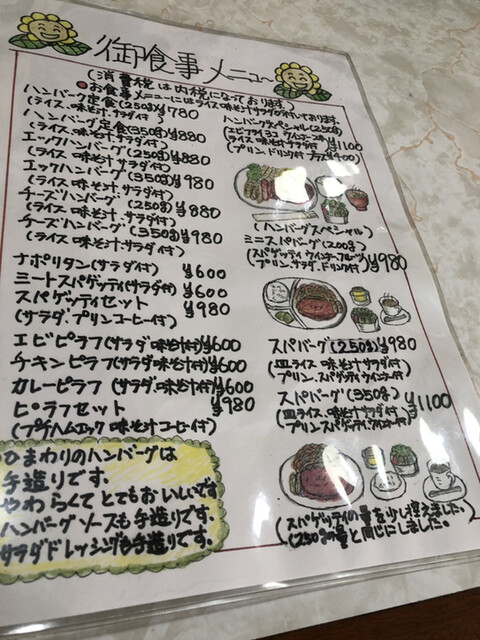 御食事メニュー
(消費税は内税になっております。)
●お食事メニューにはライス味噌汁サラダが付いております。
ハンバーグ定食(250g) ¥780
(ライス、味噌汁、サラダ付)
ハンバーグ定食(350g) ¥880
(ライス、味噌汁、サラダ付)
エッグハンバーグ(250g) ¥880
(ライス 味噌汁 サラダ付)
エッグハンバーグ(350g) ¥980
(ライス 味噌汁 サラダ付)
チーズハンバーグ(250g) ¥880
(ライス、味噌汁、サラダ付)
チーズハンバーグ(350g) ¥980
(ライス、味噌汁、サラダ付)
ナポリタン(サラダ付) ¥600
ミートスパゲッティ(サラダ付) ¥600
スパゲッティセット ¥980
(サラダ、プリンコーヒー付)
エビピラフ(サラダ 味噌汁付) ¥600
チキンピラフ(サラダ、味噌汁付) ¥600
カレーピラフ(サラダ、味噌汁付) ¥600
ピラフセット ¥980
(プチハムエッグ 味噌汁コーヒー付)
ひまわりのハンバーグは
手造りです。
やわらくてとてもおいしいです
ハンバーグソースも手造りです。
サラダドレッシングも手造りです。
ハンバーグスペシャル(250g)
(エビフライ2コ ウインナー2本) ¥1100
(ライス 味噌汁 サラダ付)
(プリン、ドリンク付 プラス¥400)
(ハンバーグスペシャル)
ミニスパバーグ(200g)
(スパゲッティ ウインナー フルーツ) ¥980
(プリン、サラダ、ドリンク付)
スパバーグ(250g) ¥980
(皿ライス 味噌汁 サラダ付)
(プリン、スパゲッティウインナー付)
スパバーグ(350g)
(皿ライス、味噌汁サラダ付) ¥1100
(プリンスパゲッティウインナー付)
(スパゲッティの量を少し控えました。)
(250gの量と同じにしました。)